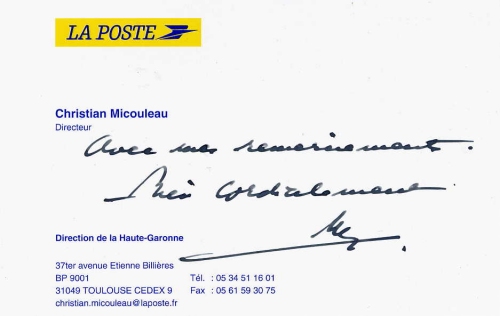 LA POSTE
Christian Micouleau
Directeur
Avec mes remerciements.
Bien cordialement
Direction de la Haute-Garonne
37ter avenue Etienne Billières
BP 9001 Tél. : 05 34 51 16 01
31049 TOULOUSE CEDEX 9 Fax : 05 61 59 30 75
christian.micouleau@laposte.fr